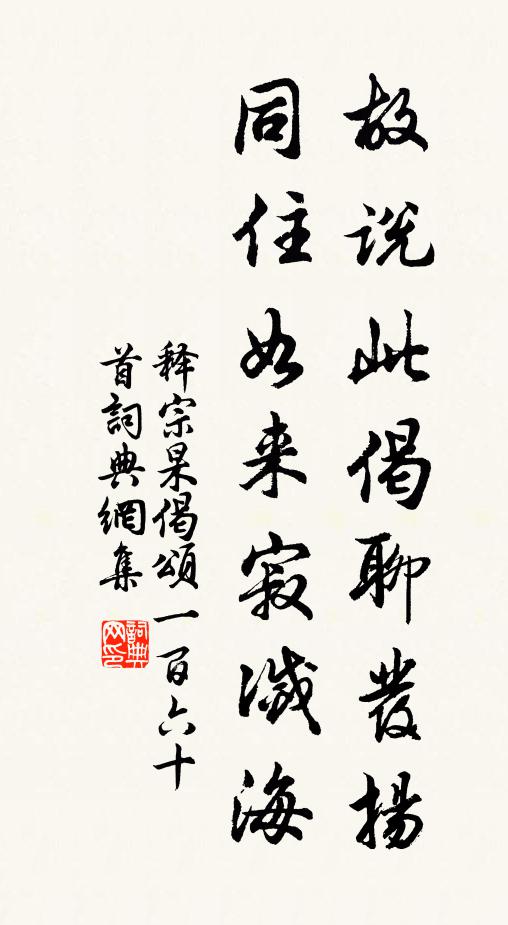 故说此偈聊發揚
同住如来寂滅海
释宗杲偈頌一百六十
首詞典網集
詞典网印